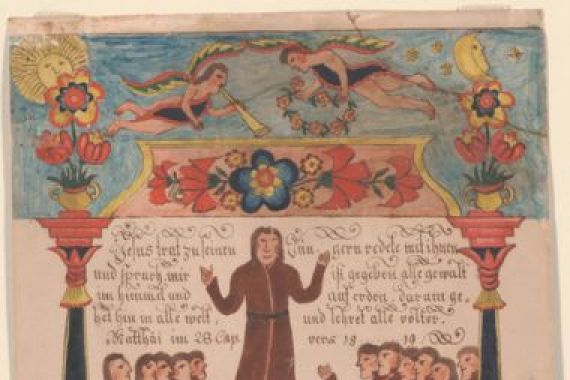 Jesus trat zu seinen Jün gern redete mit ihnen
und sprach, mir ist gegeben alle gewalt
im himmel und auf erden, darum ge.
het hin in alle welt, und lehret alle völker.
Matthäi im 28 Cap. vers 18 19